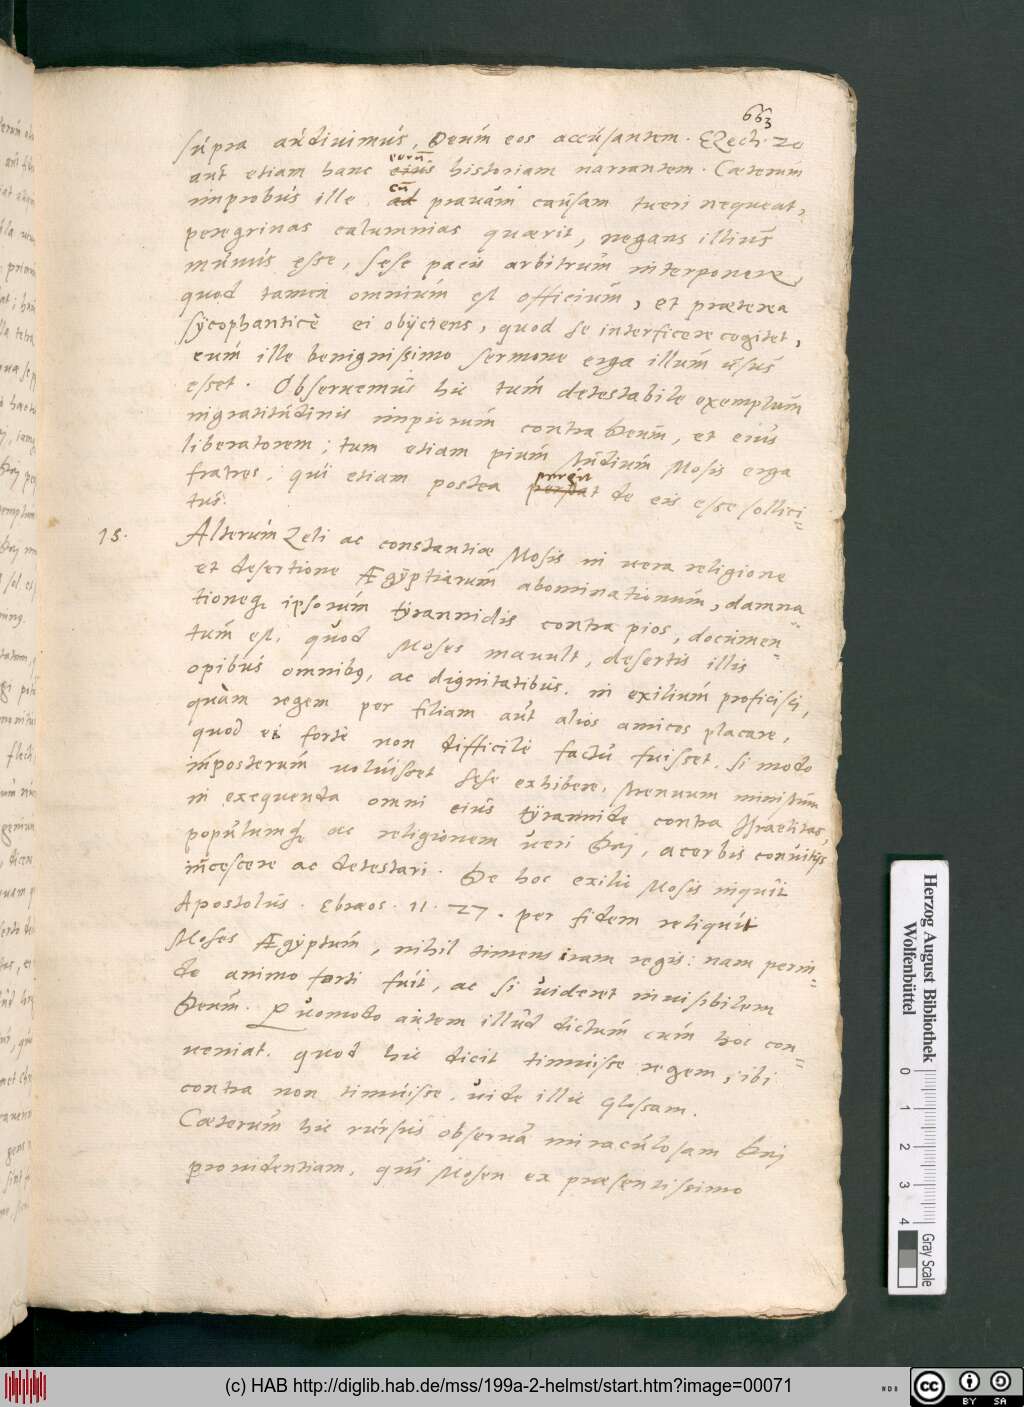 663
supra audiuimus, Deum eos accusantem. Ezech. 20
aut etiam hanc eius eorū historiam narrantem. Cæterum
improbus ille, ad cū prauam causam tueri nequeat,
peregrinas calumnias quærit, negans illius
munus esse, sese pacis arbitrum interponere,
quod tamen omnium est officium, et præterea
sycophanticè ei obijciens, quod se interficere cogitet,
cum ille benignissimo sermone erga illum usus
esset. Obseruemus hic tum detestabile exemplum
ingratitudinis impiorum contra Deum, et eius
liberatorem; tum etiam pium studium Mosis erga
fratres, qui etiam postea perstat pergit de eis esse sollici=
tus.
15. Alterum Zeli ac constantiæ Mosis in uera religione
et desertione Ægyptiarum abominationum, damna=
tioneq; ipsorum tyrannidis contra pios, documen=
tum est, quod Moses mauult, desertis illis
opibus omnibq, ac dignitatibus, in exilium proficisci,
quàm regem per filiam aut alios amicos placare,
quod ei fortè non difficile factu fuisset, si modo
imposterum uoluisset sese exhibere, strenuum ministrum
in exequenda omni eius tyrannide contra Israelitas,
populumq; ac religionem ueri Dei, acerbis conuitijs
incescere ac detestari. De hoc exilio Mosis inquit
Apostolus. Ebræos. 11. 27. per fidem reliquit
Moses Ægyptum, nihil timens iram regis: nam perin=
de animo forti fuit, ac si uideret inuisibilem
Deum. Quomodo autem illud dictum cum hoc con=
ueniat, quod hic dicit timuisse regem, ibi
contra non timuisse, uide illic Glossam.
Cæterum hic rursus obserua miraculosam Dei
prouidentiam, qui Mosen ex præsentissimo
Herzog August Bibliothek
Wolfenbüttel
0 1 2 3 4
Gray Scale
(c) HAB http://diglib.hab.de/mss/199a-2-helmst/start.htm?image=00071
cc BY SA